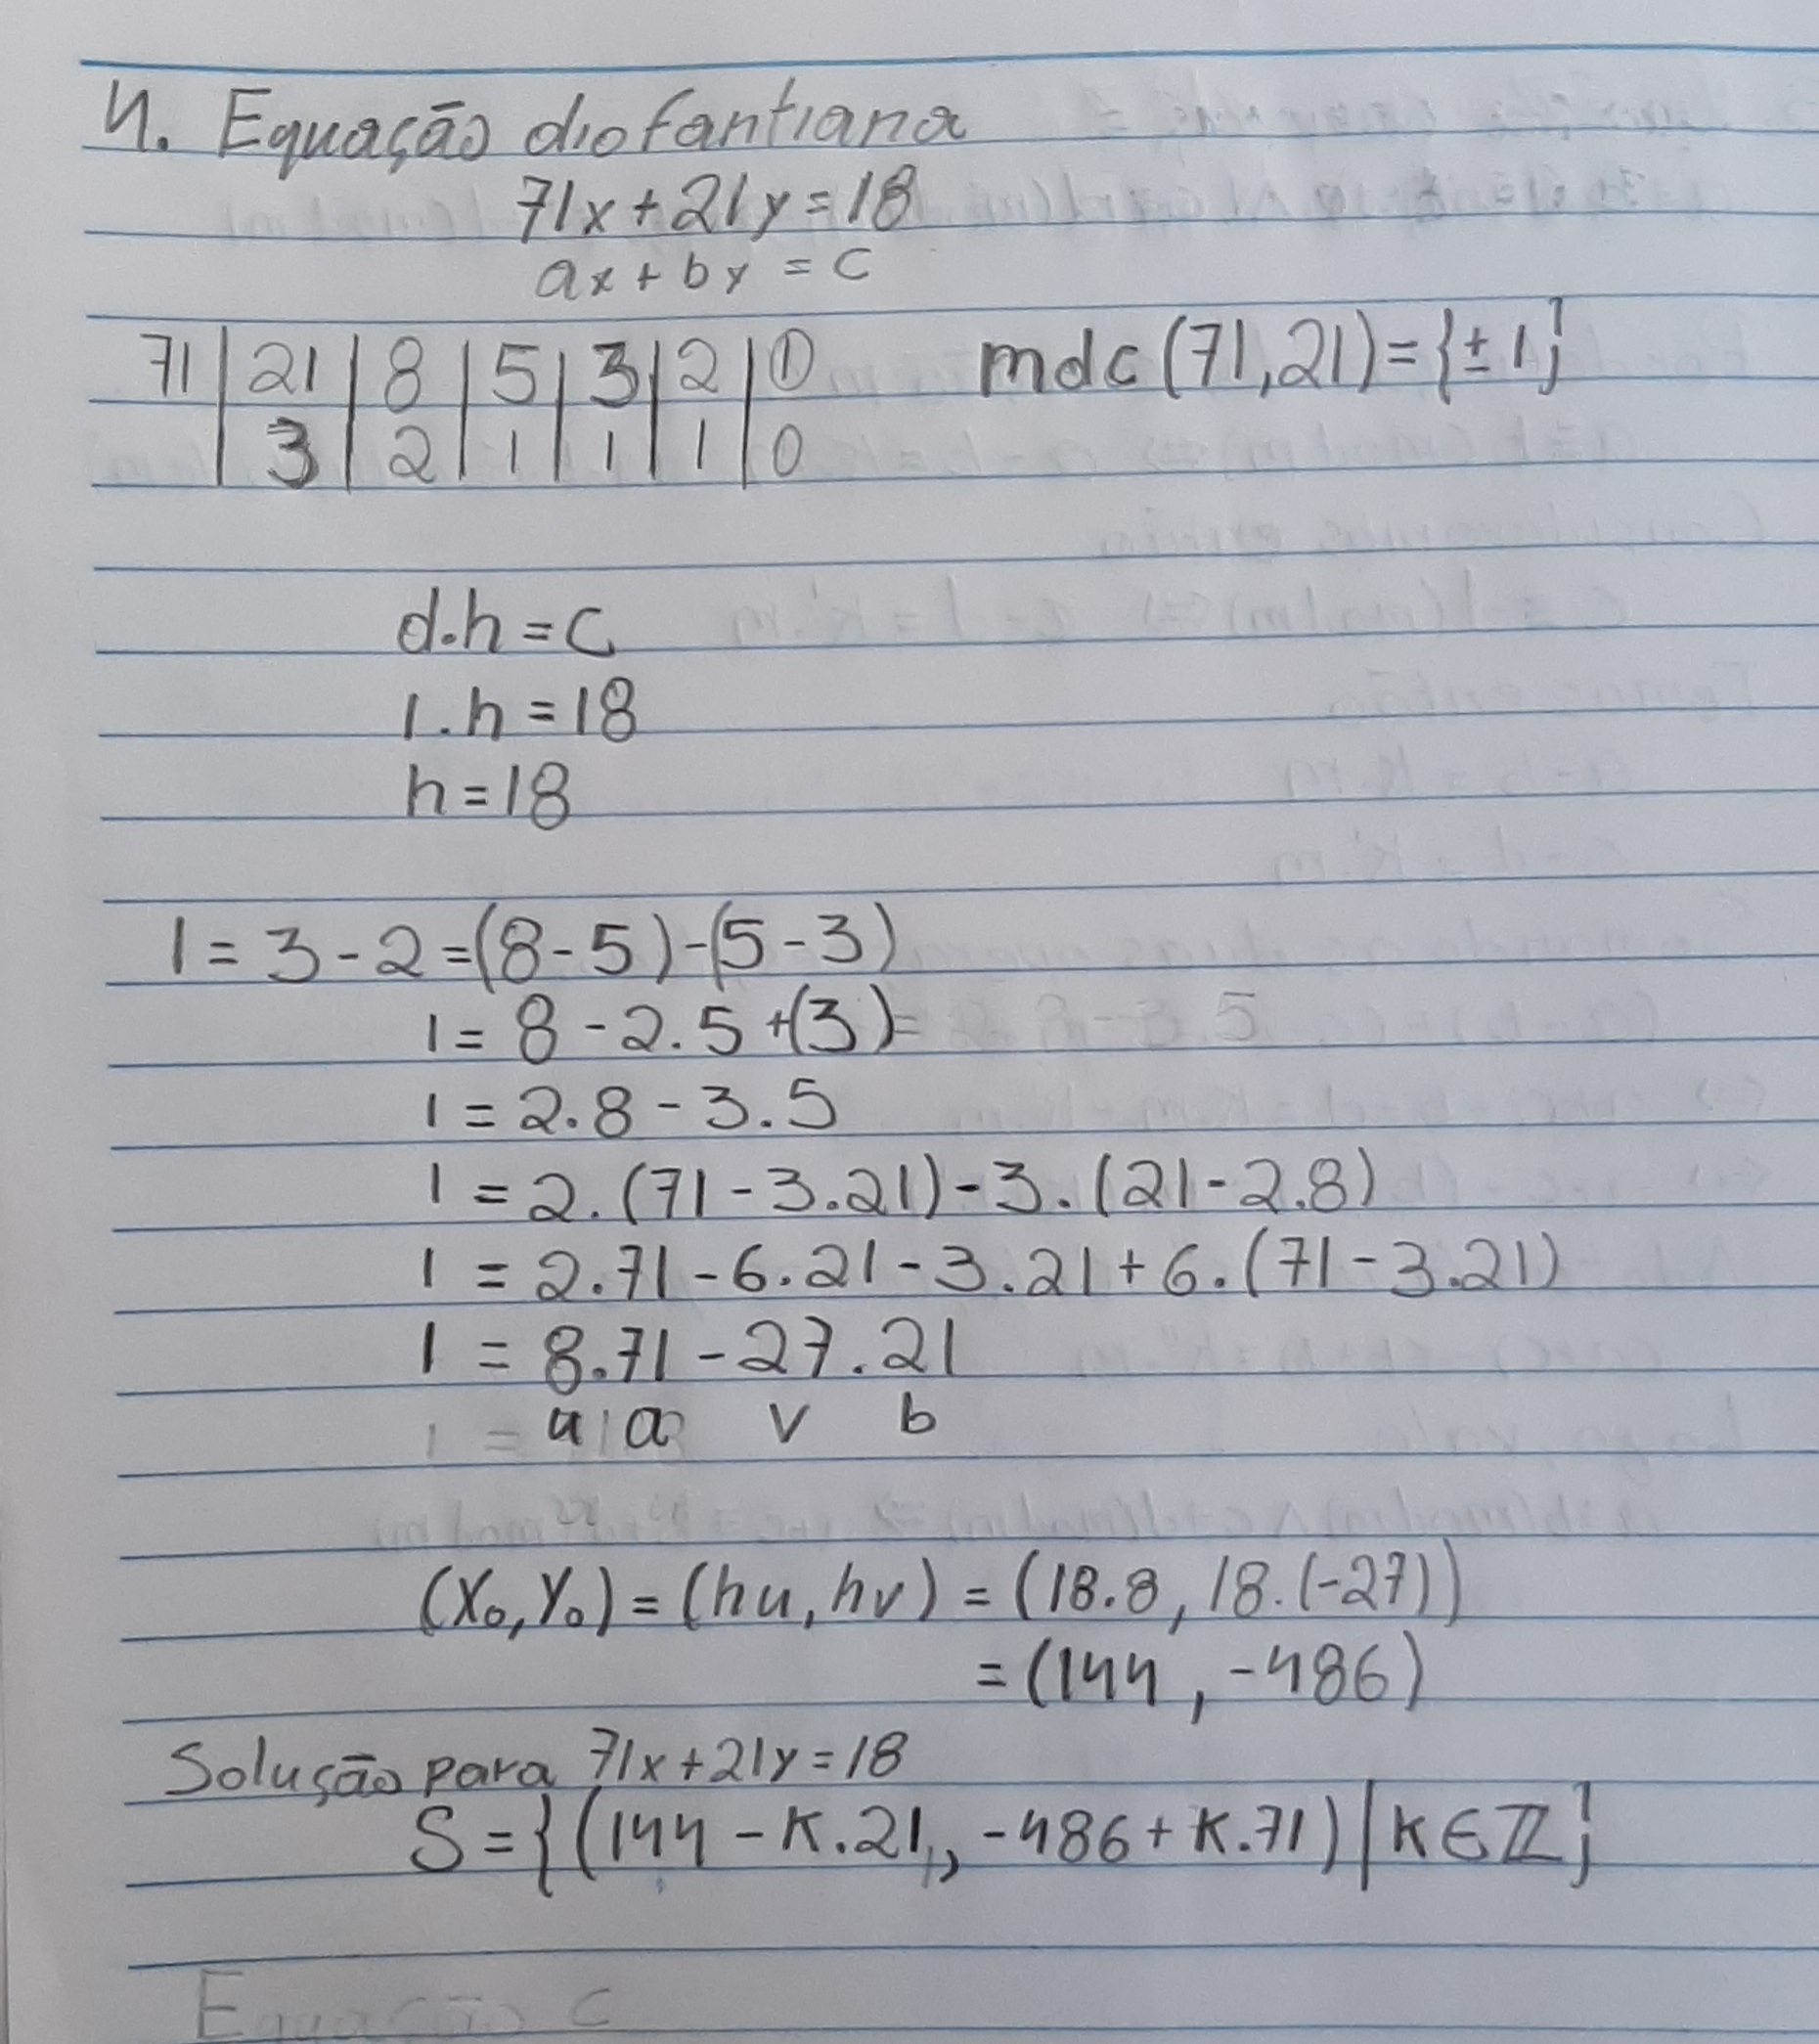 4. Equação diofantiana
71x+21y=18
ax+by=c
71|21|8|5|3|2|1 mdc(71,21)={±1}
|3|2|1|1|1|0
d.h=c
1.h=18
h=18
1=3-2=(8-5)-(5-3)
1=8-2.5+(3)=
1=2.8-3.5
1=2.(71-3.21)-3.(21-2.8)
1=2.71-6.21-3.21+6.(71-3.21)
1=8.71-27.21
u a v b
(x₀,y₀)=(hu,hv)=(18.8,18.(-27))
=(144,-486)
Solução para 71x+21y=18
S={(144-K.21,-486+K.71)|K∈ℤ}
Equação C